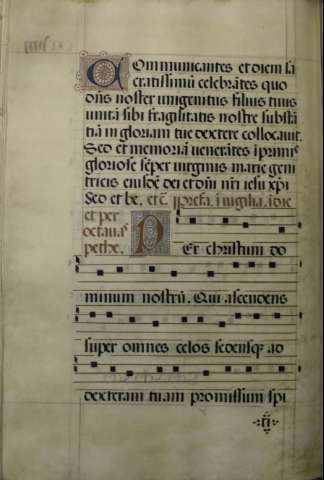 Communicantes et diem sa
cratissimū celebrātes quo
dn̄s noster unigenitus filius tuus
unitā sibi fragilitatis nostre substā
tiā in gloriam tue dextere collocauit.
Sed et memoriā uenerātes ī primis
gloriose sēper uirginis marie geni
tricis eiusdē dei et dn̄i nr̄i iesu xp̄i
Sed et be. etc̄. Prefa. ī uigilia. ī die
et per
octauas
pēthe. Per christum do
minum nostrū. Qui ascendens
super omnes celos sedensqȝ ad
dexteram tuam promissum spi